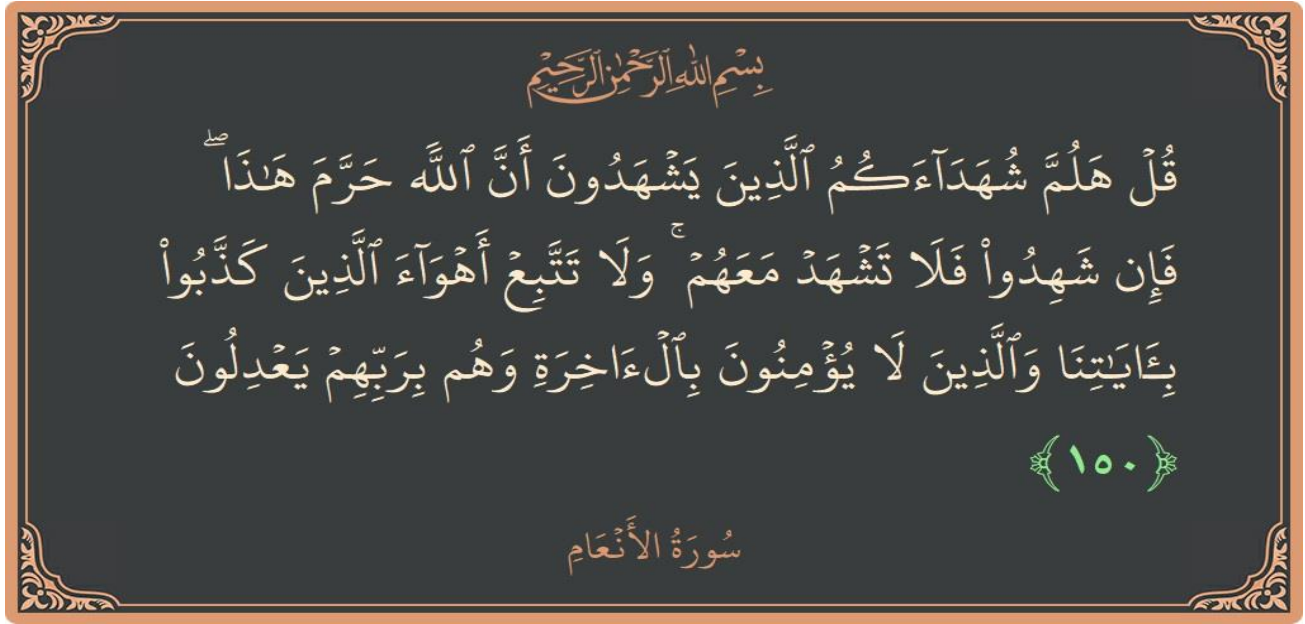 بِسْمِ اللَّهِ الرَّحْمَٰنِ الرَّحِيمِ
قُلْ هَلُمَّ شُهَدَآءَكُمُ ٱلَّذِينَ يَشْهَدُونَ أَنَّ ٱللَّهَ حَرَّمَ هَـٰذَا ۖ
فَإِن شَهِدُوا۟ فَلَا تَشْهَدْ مَعَهُمْ ۚ وَلَا تَتَّبِعْ أَهْوَآءَ ٱلَّذِينَ كَذَّبُوا۟
بِـَٔايَـٰتِنَا وَٱلَّذِينَ لَا يُؤْمِنُونَ بِٱلْـَٔاخِرَةِ وَهُم بِرَبِّهِمْ يَعْدِلُونَ
﴿١٥٠﴾
سُورَةُ الأَنْعَامِ